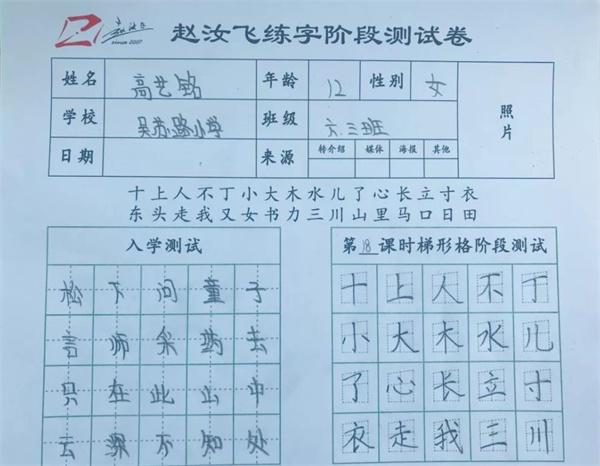 赵汝飞练字阶段测试卷
since 2007
姓名 高艺铭 年龄 12 性别 女 照片
学校 吴苏路小学 班级 六.三班
日期 来源 转介绍 媒体 海报 其他
十上人不丁小大木水儿了心长立寸衣
东头走我又女书力三川山里马口日田
入学测试
松下问童子
言师采药去
只在此山中
云深不知处
第18课时梯形格阶段测试
十上人不丁
小大木水儿
了心长立寸
衣走我三川